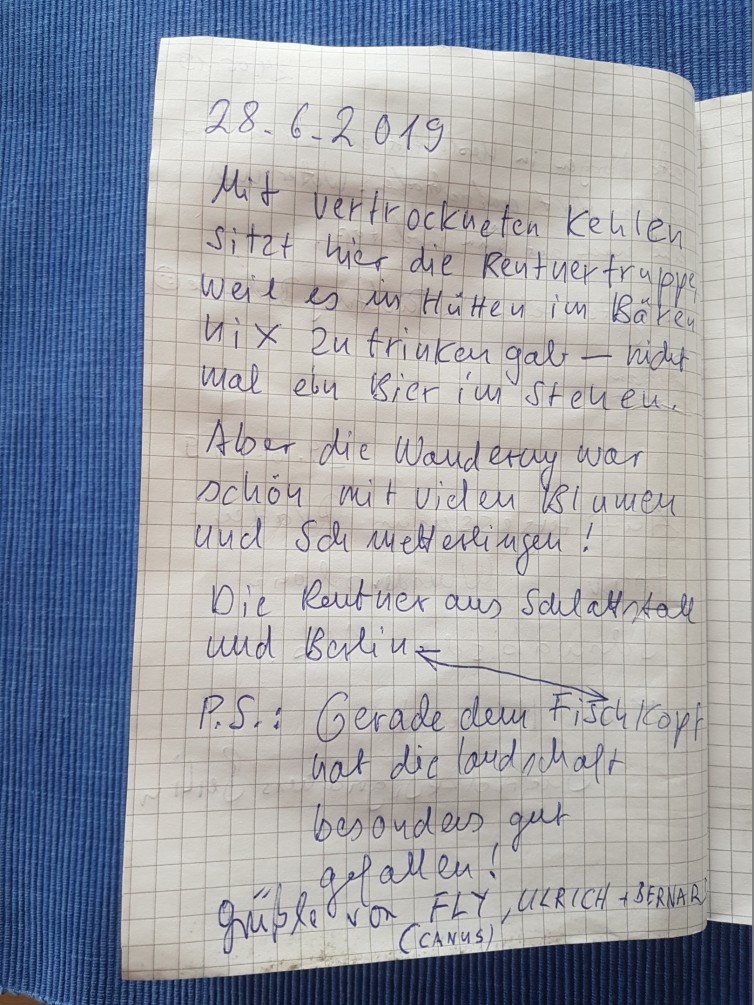 28.6.2019
Mit vertrockneten Kehlen
sitzt hier die Rentnertruppe,
weil es in Hütten im Bären
nix zu trinken gab – nicht
mal ein Bier im Stehen.
Aber die Wanderung war
schön mit vielen Blumen
und Schmetterlingen!
Die Rentner aus Schlattstall
und Berlin
P.S.: Gerade dem Fischkopf
hat die Landschaft
besonders gut
gefallen!
Grüßle von FLY, ULRICH + BERNARD
(CANUS)